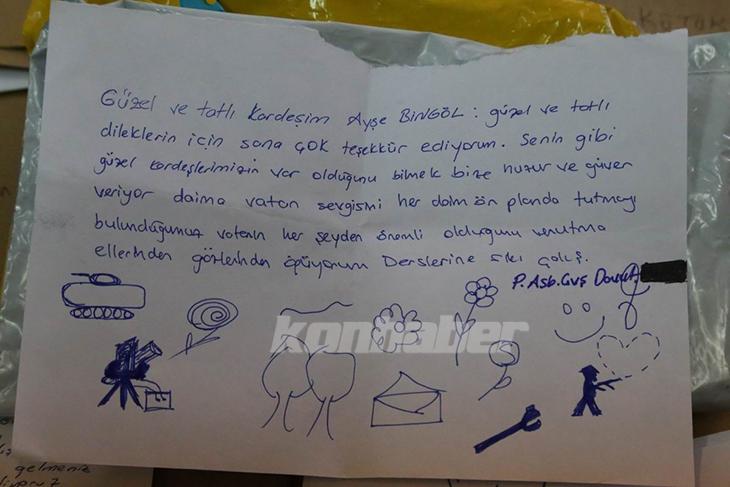 KUTAH
Güzel ve tatlı kardeşim Ayşe BİNGÖL: güzel ve tatlı
dileklerin için sana ÇOK teşekkür ediyorum. Senin gibi
güzel kardeşlerimizin var olduğunu bilmek bize huzur ve güven
veriyor daima vatan sevgisini her daim ön planda tutmayı
bulunduğumuz vatanın her şeyden önemli olduğunu unutma
ellerinden gözlerinden öpüyorum Derslerine sıkı çalış.
P. Asb. Çvş Davut
konhaber
gelmeniz